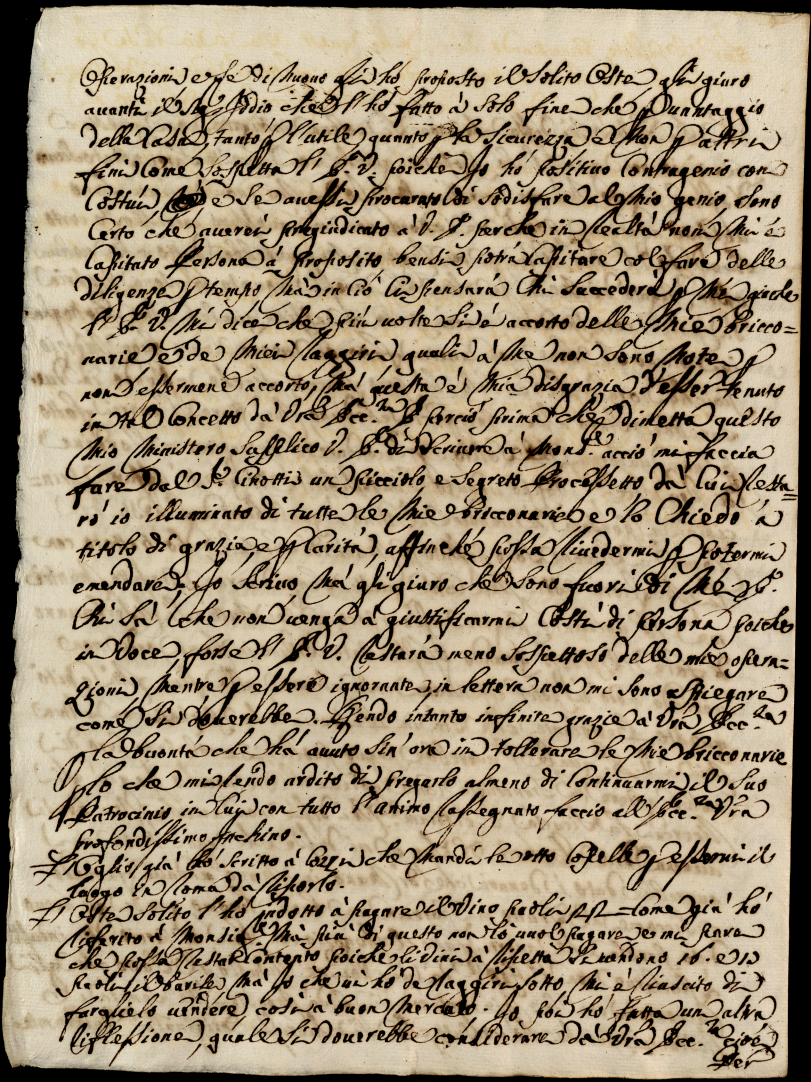 Operazioni e se di nuovo gli hò proposto il solito Oste gli giuro
avanti il Sig.r Iddio che l'hò fatto à solo fine che p vantaggio
della Casa, tanto p l'utile, quanto p la sicurezza e non p altri
fini come sospetta l'E. V. poiche Io hò positivo contragenio con
Costui e se avessi procurato di sodisfare al Mio genio, sono
Certo che averei pregiudicato à V. E. perche in Realtà non Mi è
Capitato Persona à proposito bensi potrà Capitare col fare delle
diligenze p tempo, Mà in Ciò Ci pensarà Chi succederà p Mè, gioche
l'E. V. Mi dice che più volte Si è accorto delle Mie bricco=
narie e de Miei Raggiri quali à Me non sono Note p
non essermene accorto, Mà questa è Mia disgrazia d'esser tenuto
in tal Concetto da Vrã Ecc.za E perciò prima che dimetta questo
Mio Ministero Supplico V. E. di scrivere à Mons.r acciò mi faccia
fare dal S.r Cinotti un picciolo e segreto Processetto da Cui Resta=
rò io illuminato di tutte le Mie Bricconarie e lo Chiedo à
titolo di grazia e p Carità, affinche possa Ravedermi p potermi
emendare, Io Scrivo Mà gli giuro che sono fuori di Mè, e
Chi Sà che non venga à giustificarmi Costì di persona poiche
in Voce forse l'E. V. Restarà meno sospettoso delle mie opera=
zioni, Mentre p essere ignorante, in lettera non mi sono Spiegare
come Si doverebbe. Rendo intanto infinite grazie à Vrã Ecc.za
p la buonta che hà avuto sin'ora in tollerare le Mie Bricconarie
p lo che mi Rendo ardito di pregarlo almeno di Continuarmi il Suo
Patrocinio in Cui con tutto l'animo Rassegnato faccio all'Ecc.za Vrã
profondissimo Inchino.
già hò scritto à che Mandi le otto Copelle p esservi il
luogo in Roma da Riporlo.
L'Oste solito l'hò indotto à pagare il Vino paoli come già hò
Riferito à Monsig.e Mà più di questo non lo vuol pagare e mi pare
che possa Restar Contento poiche li Vini à Ripetta Si vendono 16. e 17
paoli il barile Mà Io che vi hò de Raggiri sotto Mi è Riuscito di
farglielo vendere così à buon Mercato. Io poi hò fatta un altra
Riflessione, quale Si doverebbe considerare da Vrã Ecc.za cioè
Per